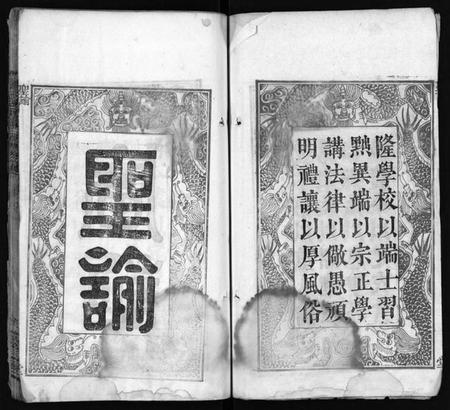 隆學校以端士習
黜異端以宗正學
講法律以儆愚頑
明禮讓以厚風俗
聖諭